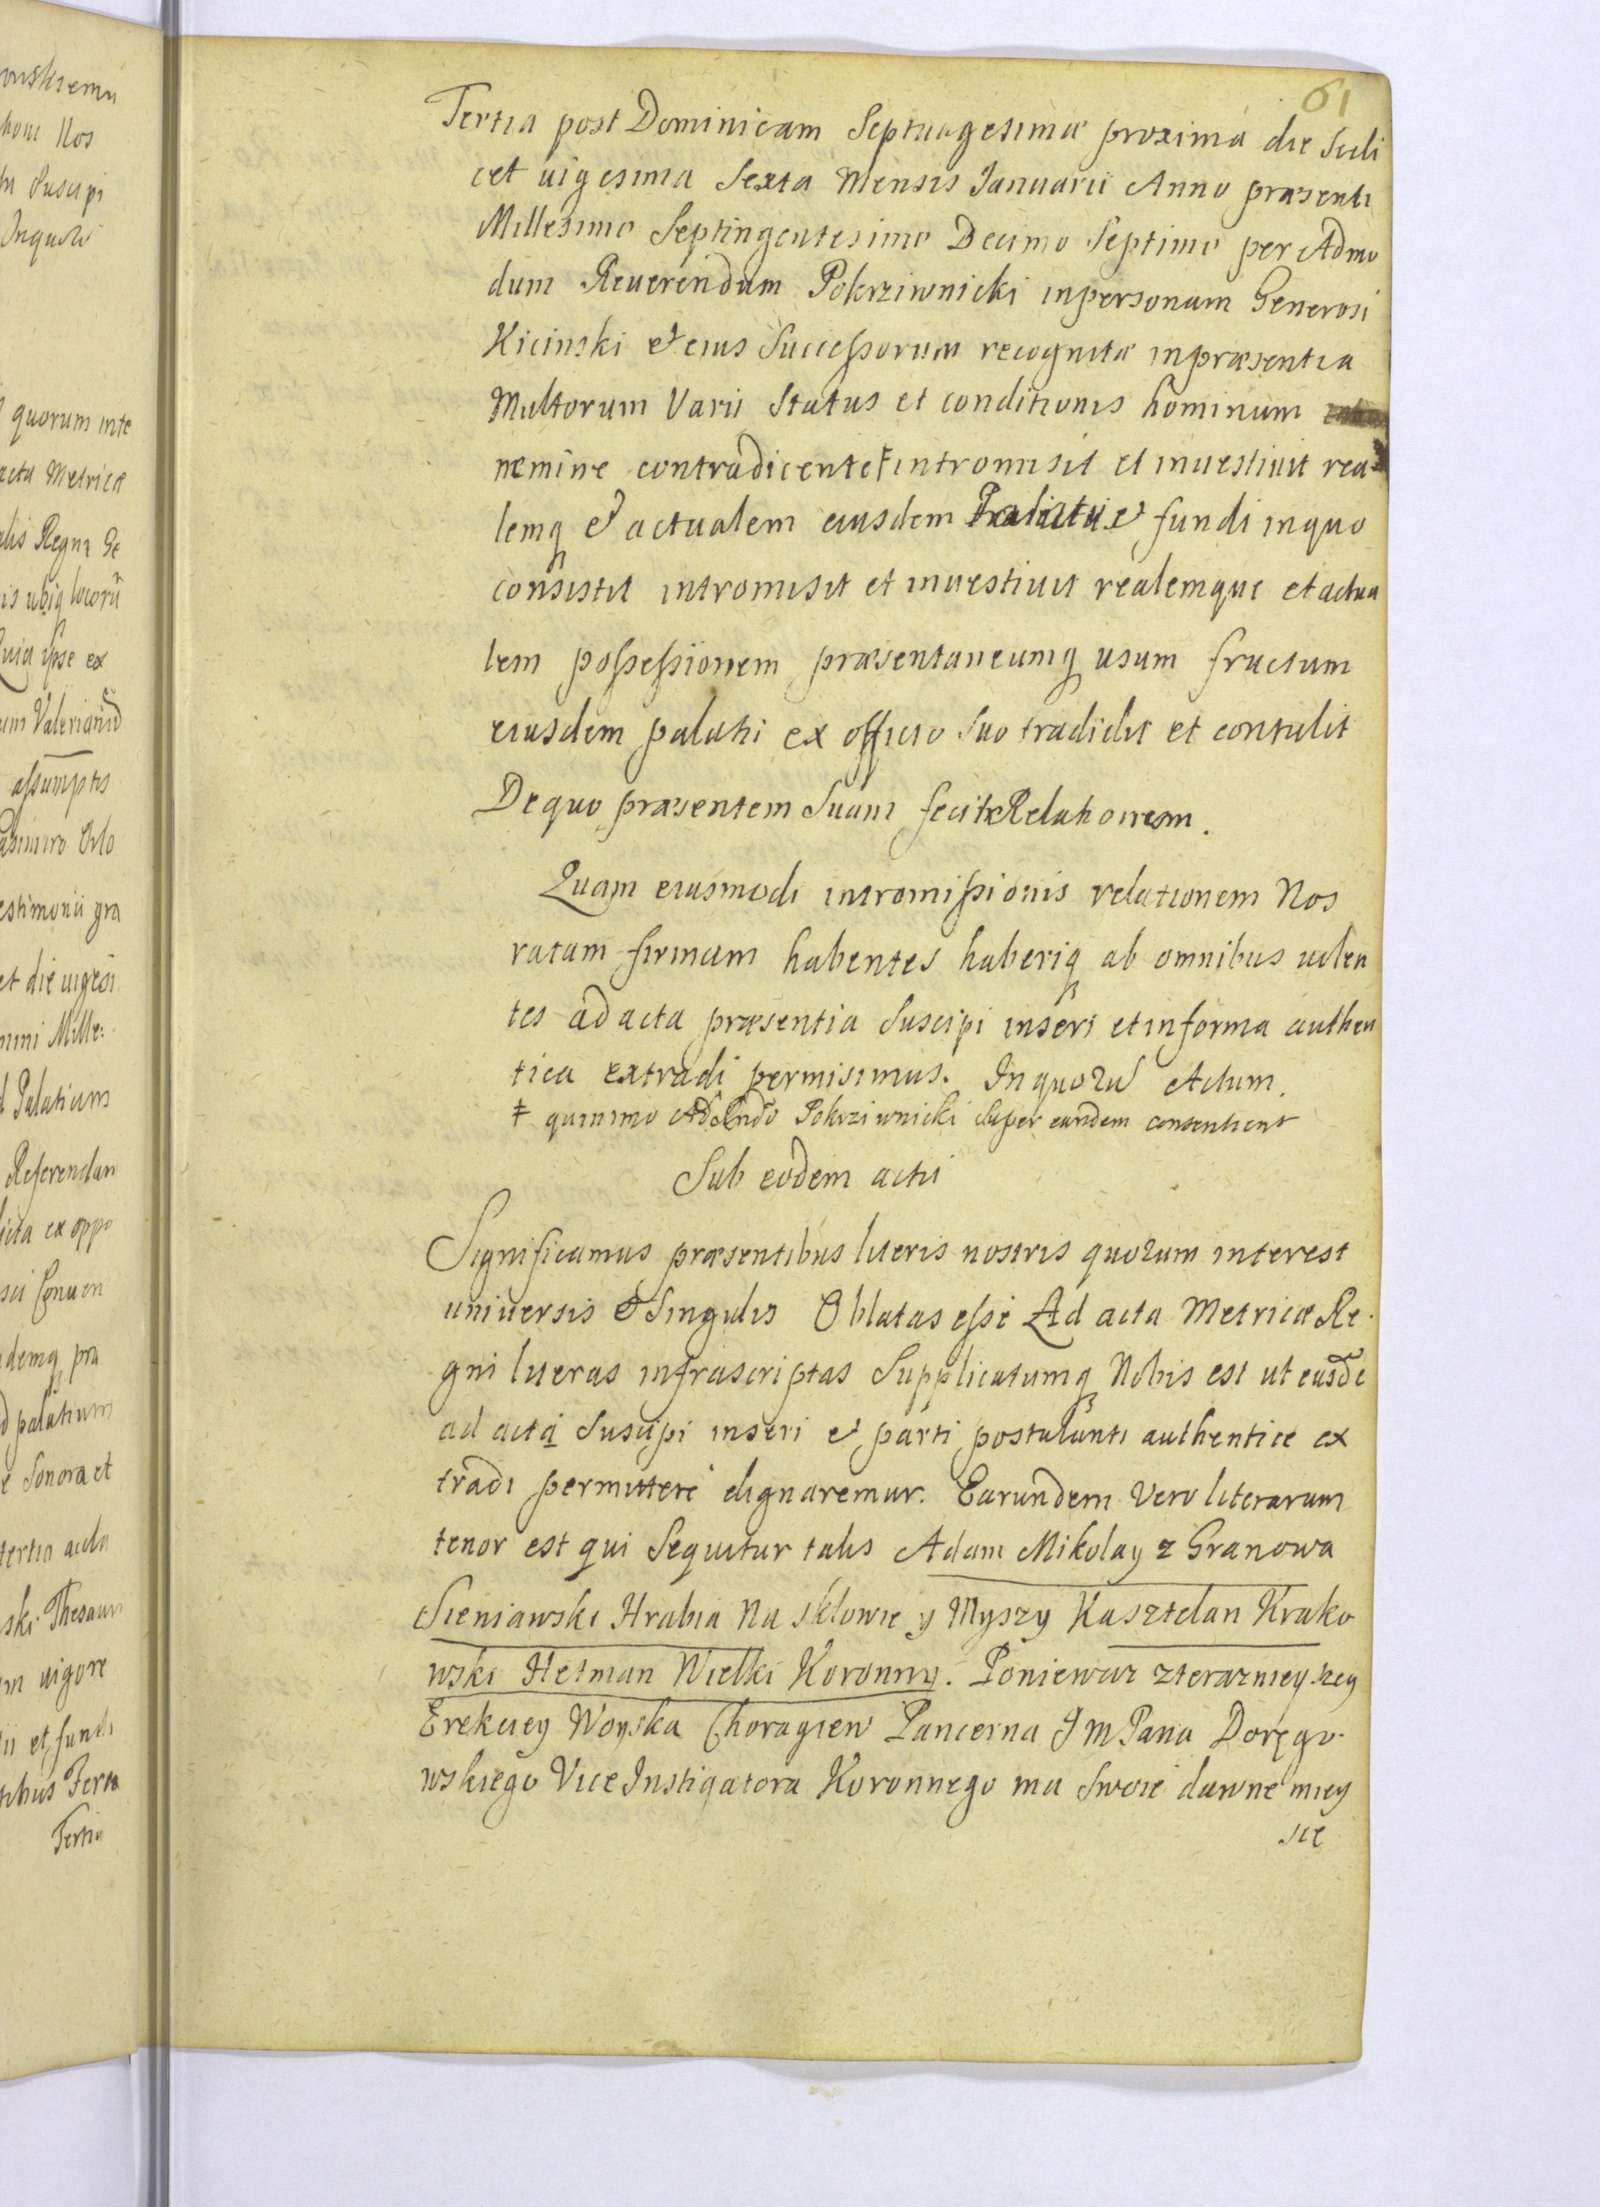 61
Tertia post Dominicam Septuagesimæ proxima die Scili
cet uigesima Sexta Mensis Januarii Anno præsenti
Millesimo Septingentesimo Decimo Septimo per Admo
dum Reuerendum Pokrziwnicki inpersonam Generosi
Kicinski et eius Succeßorum recognitæ inpræsentia
Multorum Varii Status et conditionis hominum
nemine contradicente ‡ intromisit et inuestiuit rea
lemq et actualem eiusdem Palatii et fundi inquo
consistit intromisit et inuestiuit realemque et actua
lem poßeßionem præsentaneumq usum fructum
eiusdem palatii ex officio suo tradidit et contulit
De quo præsentem Suam fecit Relationem.
Quam eiusmodi intromißionis relationem Nos
ratam firmam habentes haberiq ab omnibus uolen
tes ad acta præsentia Suscipi inseri et informa authen
tica extradi permisimus. In quorū Actum.
‡ quinimo Adm Rndo Pokrziwnicki Super eandem consentient
Sub eodem actu
Significamus præsentibus literis nostris quorum interest
uniuersis et Singulis Oblatas eße Ad acta Metricæ Re
gni literas infrascriptas Supplicatumq Nobis est ut easde
ad acta Suscipi inseri et parti postulanti authentice ex
tradi permittere dignaremur. Earundem Vero literarum
tenor est qui Sequitur talis Adam Mikolay z Granowa
Sieniawski Hrabia Na Sklowie y Myszy Kasztelan Krako
wski Hetman Wielki Koronny. Poniewaz zterazniey szey
Erekciey Woyska Choragiew Pancerna J M Pana Doręgo
wskiego Vice Instigatora Koronnego ma Swoie dawne miey
sce
onskiemu
Nos
Suscipi
quorum inte
acta Metricæ
alis Regni
is ubiq locorū
ipse ex
um Valerianū
aßumptis
asimiro Orlo
estimonii gra
et die uigesi
mini Mille:
Palatium
Referendari
icta ex oppo
Conuen
demq præ
palatium
Sonora et
tertia acta
ski Thesauri
m uigore
ii et fundi
Feria
Tertia